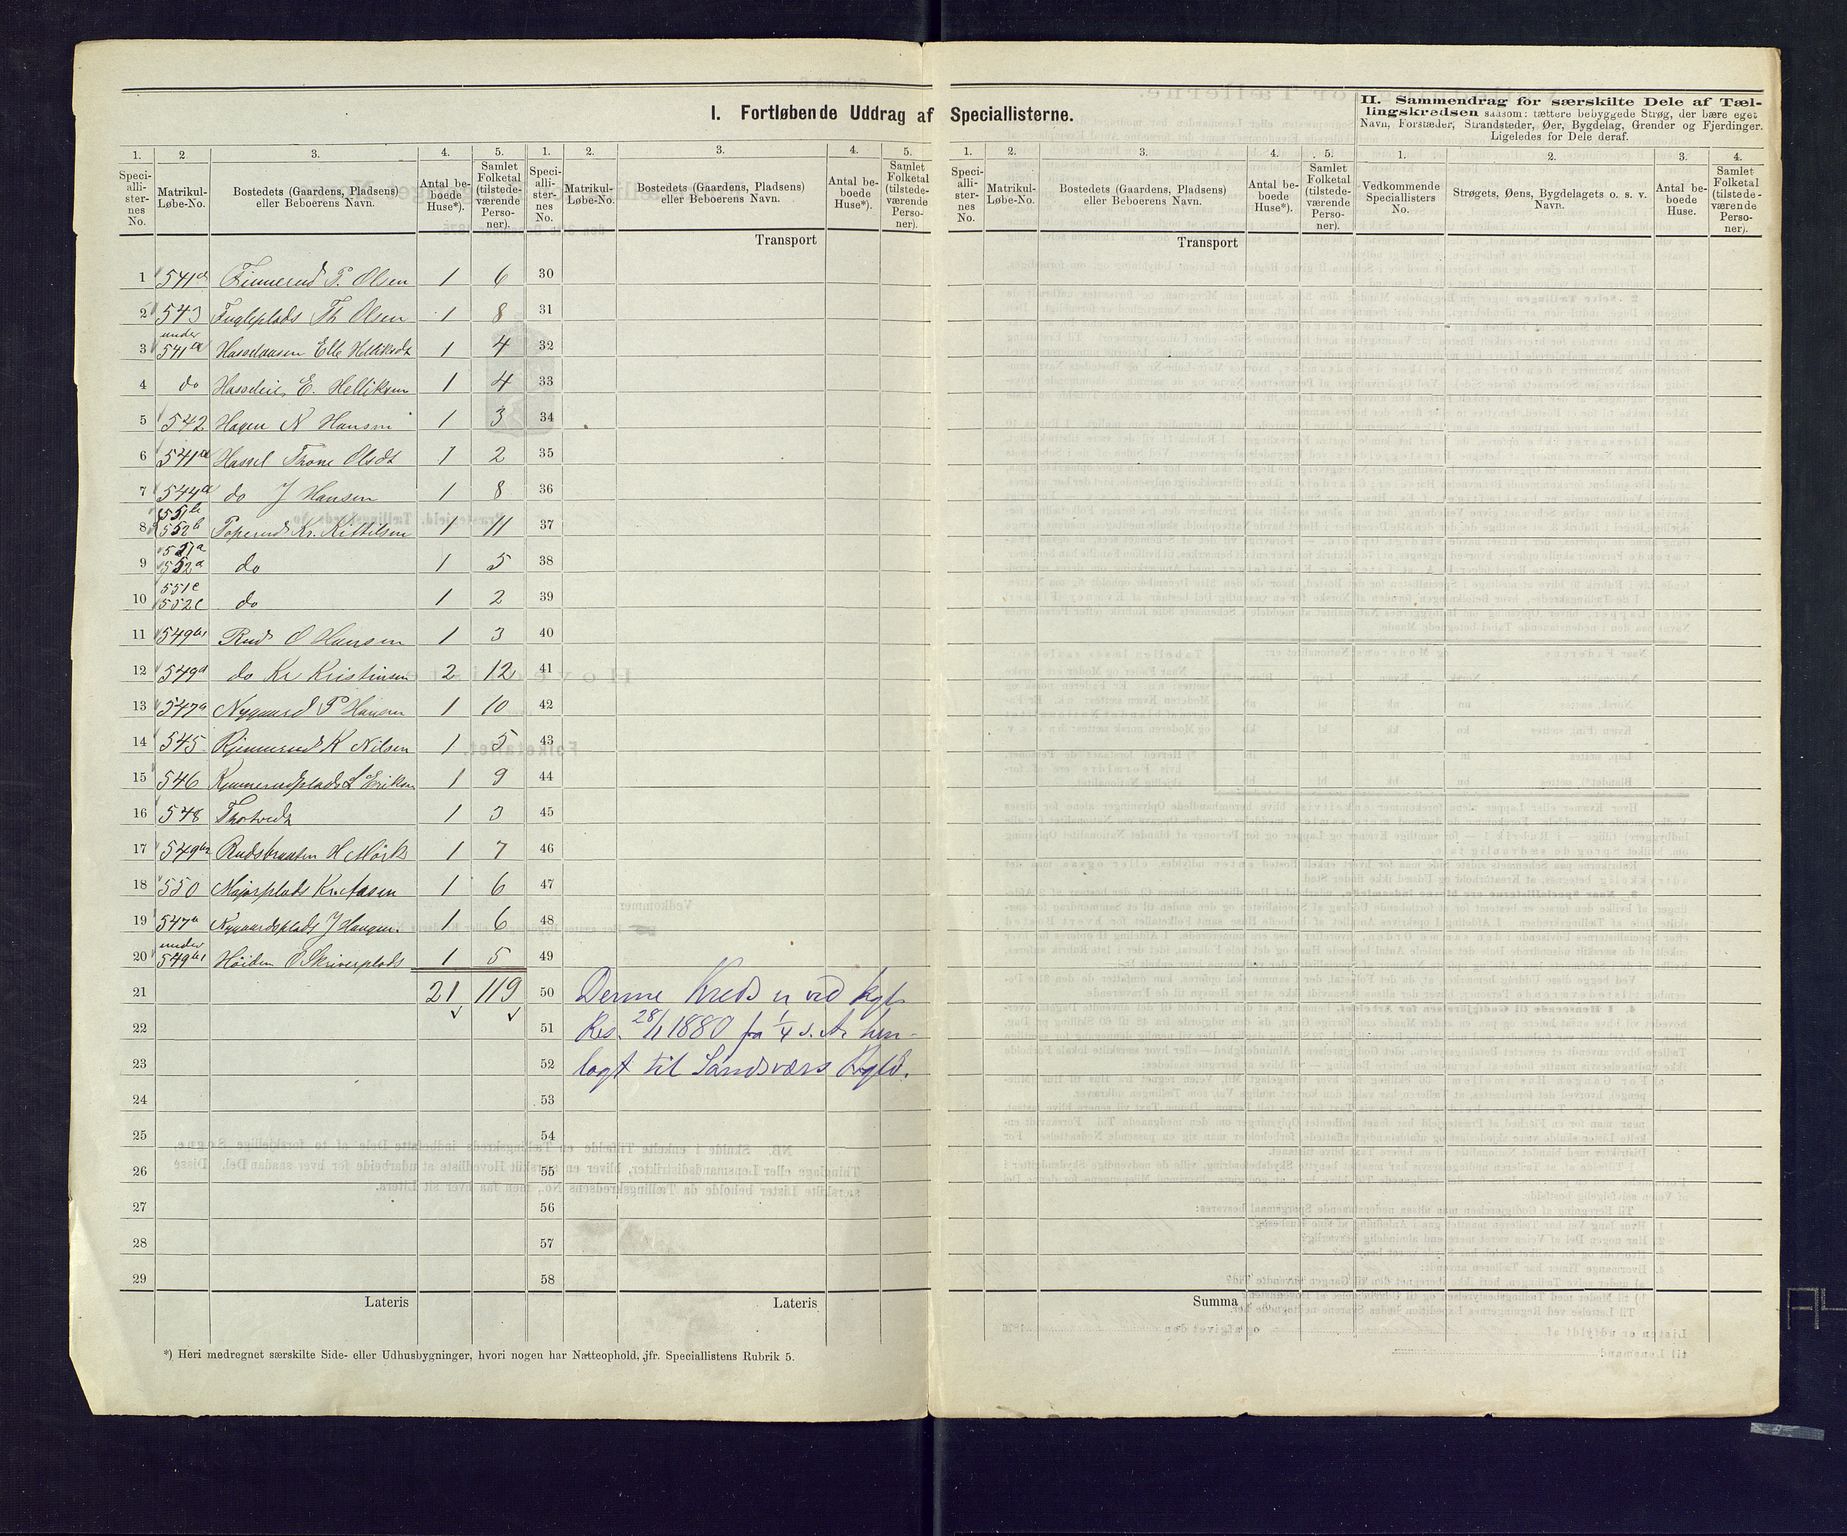 I. Fortløbende Uddrag af Speciallisterne.
II. Sammendrag for særskilte Dele af Tæl-
lingskredsen saasom: tættere bebyggede Strøg, der bære eget
Navn, Forstæder, Strandsteder, Øer, Bygdelag, Grender og Fjerdinger.
Ligeledes for Dele deraf.
1. Speciallisternes No. 2 Matrikul-Løbe-No. 3. Bostedets (Gaardens, Pladsens) eller Beboerens Navn. 4. Antal beboede Huse*). 5. Samlet Folketal (tilstedeværende Personer).
1. Speciallisternes No. 2. Matrikul-Løbe-No. 3. Bostedets (Gaardens, Pladsens) eller Beboerens Navn. 4. Antal beboede Huse*). 5. Samlet Folketal (tilstedeværende Personer).
1. Speciallisternes No. 2. Matrikul-Løbe-No. 3. Bostedets (Gaardens, Pladsens) eller Beboerens Navn. 4. Antal beboede Huse*). 5. Samlet Folketal (tilstedeværende Personer).
1. Vedkommende Speciallisters No. 2. Strøgets, Øens, Bygdelagets o. s. v. Navn. 3. Antal beboede Huse. 4. Samlet Folketal (tilstedeværende Personer).
Transport Transport
1 541a P. Olsen 1 6 30
2 543 Fugleplads Th Olsen 1 8 31
3 under 541a Elle 1 4 32
4 do E. Helliksen 1 4 33
5 542 Hagen N Hansen 1 3 34
6 541a Hassel Trone Olsdt 1 2 35
7 544a do J Hansen 1 8 36
8 551b 552b Toperud Kr. Kittilsen 1 11 37
9 551a 552a do 1 5 38
10 551c 552c do 1 2 39
11 549b1 Rud O Hansen 1 3 40
12 549a do Kr Kristensen 2 12 41
13 547a Nygaard P Hansen 1 10 42
14 545 K Nilsen 1 5 43
15 546 L Eriksen 1 9 44
16 548 Thotvedt 1 3 45
17 549b2 Rudsbraaten H Mørk 1 7 46
18 550 Majorplads Kr. Aasen 1 6 47
19 547a Nygaardsplads J Haugen. 1 6 48
20 under 549b1 Høiden O Skriverplads 1 5 49
21 21 119 50
22 51
23 52
24 53
25 54
26 55
27 56
28 57
29 58
Denne Kreds er ved kgl.
Res. 28/1 1880 fra 1/4 s. A. hen-
lagt til Sandsværs Prgld.
Lateris Lateris Summa
*) Heri medregnet særskilte Side- eller Udhusbygninger, hvori nogen har Natteophold, jfr. Speciallistens Rubrik 5.